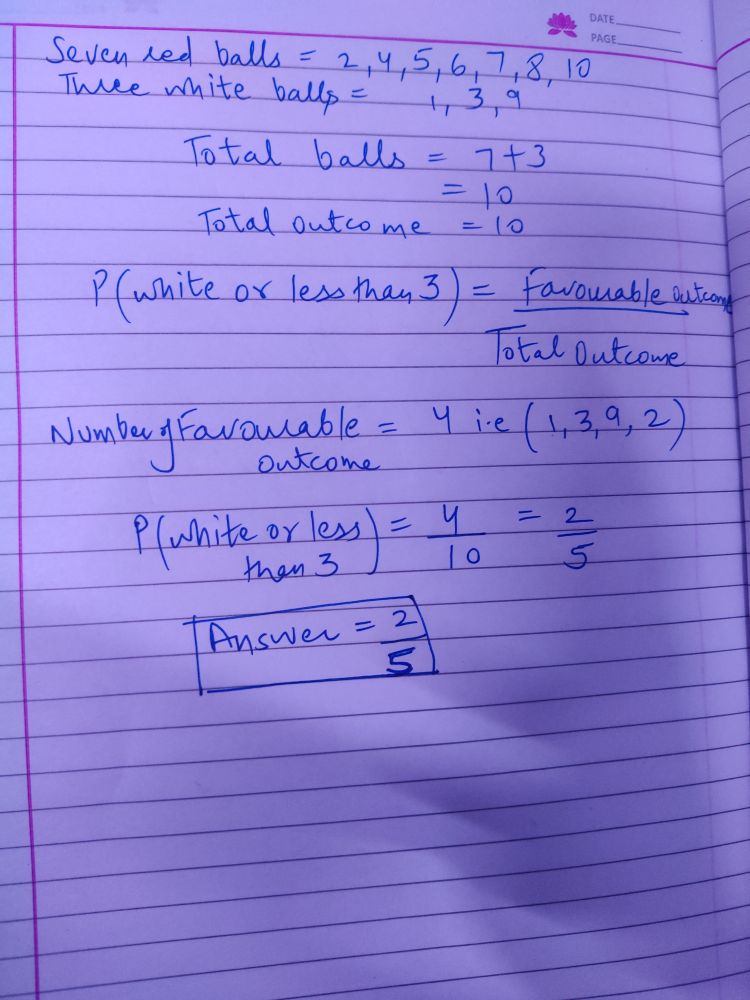 DATE
PAGE
Seven red balls = 2, 4, 5, 6, 7, 8, 10
Three white balls = 1, 3, 9
Total balls = 7+3
= 10
Total outcome = 10
P(white or less than 3) = Favourable outcome
Total Outcome
Number of Favourable = 4 i.e (1, 3, 9, 2)
outcome
P(white or less = 4/10 = 2/5
than 3)
Answer = 2/5